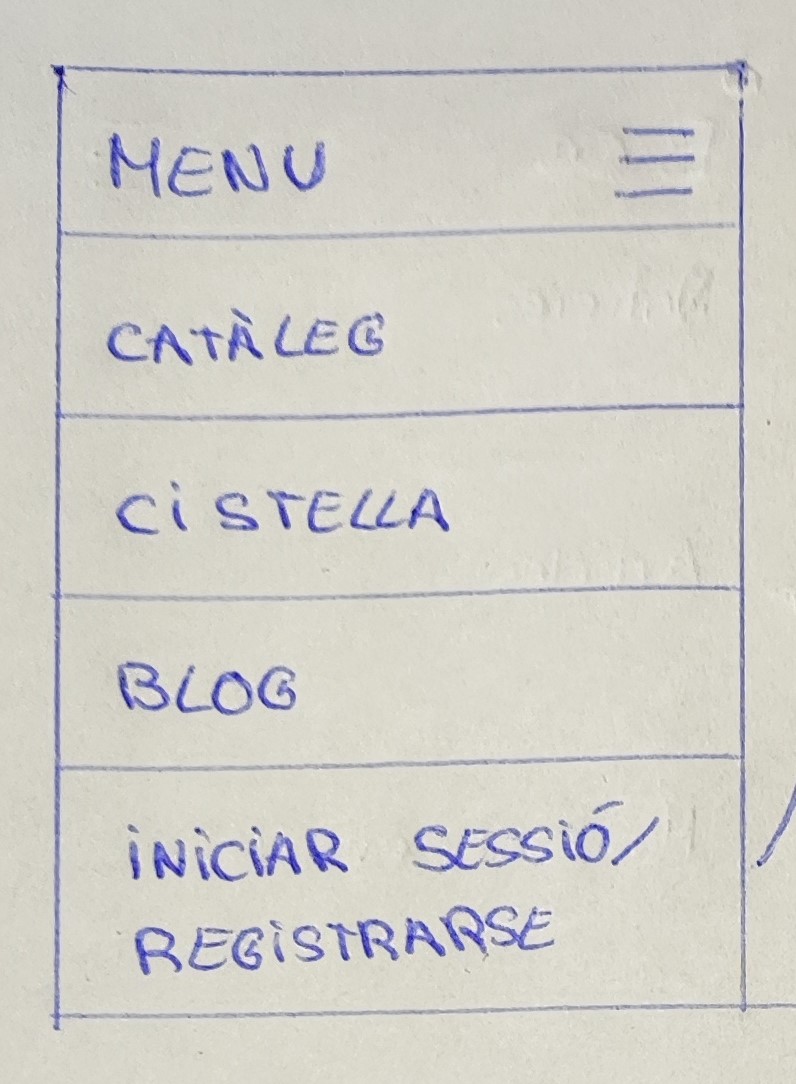 MENU
CATÀLEG
CiSTELLA
BLOG
iNiCiAR SESSiÓ/
REGiSTRARSE